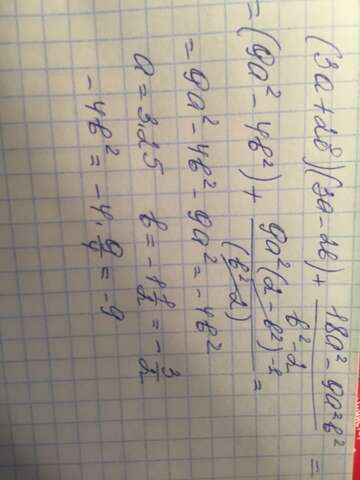 (3a+2b)(3a-2b) + (18a²-9a²b²)/(b²-2) =
= (9a²-4b²) + (9a²(2-b²)⁻¹)/(b²-2) =
= 9a²-4b²-9a² = -4b²
a = 3,25 b = -1 1/2 = -3/2
-4b² = -4·9/4 = -9